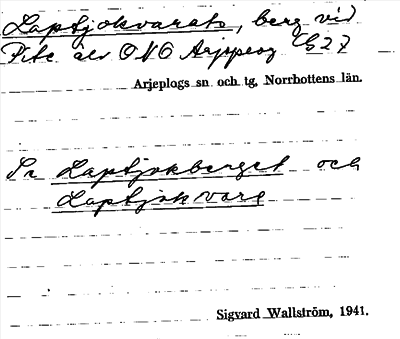 Laptjokvarats, berg vid
Pite älv ONO Arjeplog G27
Arjeplogs sn och tg, Norrbottens län.
Se Laptjokberget och
Laptjokvare
Sigvard Wallström, 1941.